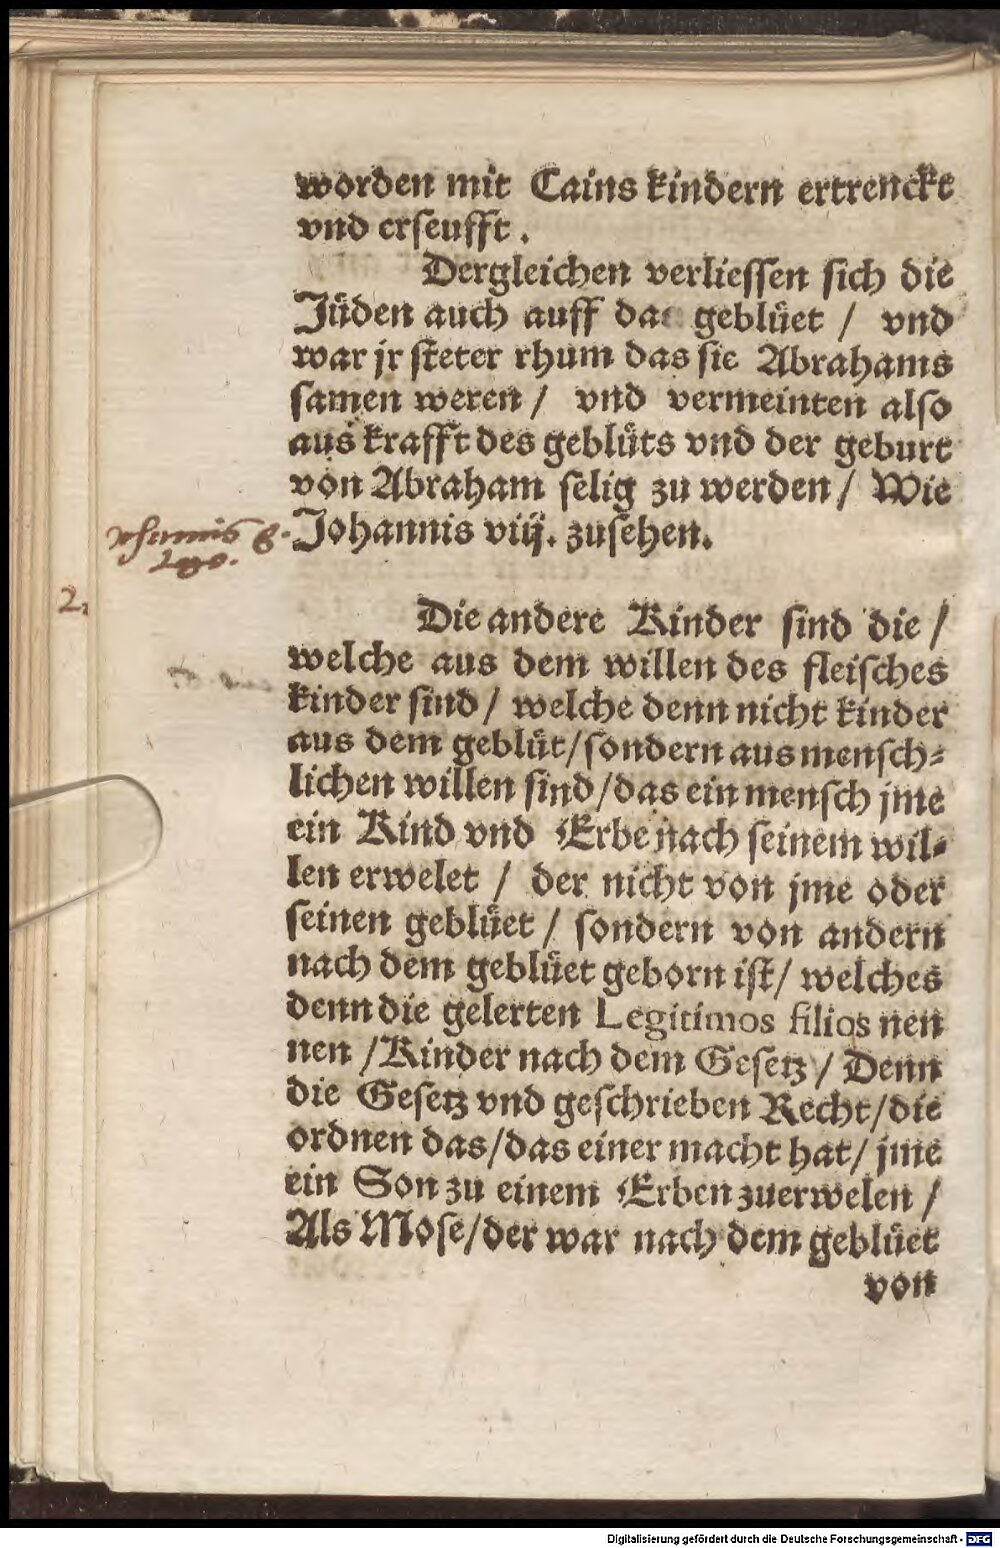 worden mit Cains kindern ertrenckt
vnd erseufft.
Dergleichen verliessen sich die
Jüden auch auff das geblüet / vnd
war jr steter rhum das sie Abrahams
samen weren / vnd vermeinten also
aus krafft des geblüts vnd der geburt
von Abraham selig zu werden / Wie
Johannis viij. zusehen.
8.
2.
Die andere Kinder sind die /
welche aus dem willen des fleisches
kinder sind / welche denn nicht kinder
aus dem geblüt / sondern aus mensch=
lichen willen sind / das ein mensch jme
ein Kind vnd Erbe nach seinem wil=
len erwelet / der nicht von jme oder
seinen geblüet / sondern von andern
nach dem geblüet geborn ist / welches
denn die gelerten Legitimos filios nen
nen / Kinder nach dem Gesetz / Denn
die Gesetz vnd geschrieben Recht / die
ordnen das / das einer macht hat / jme
ein Son zu einem Erben zuerwelen /
Als Mose / der war nach dem geblüet
von
Digitalisierung gefördert durch die Deutsche Forschungsgemeinschaft - DFG